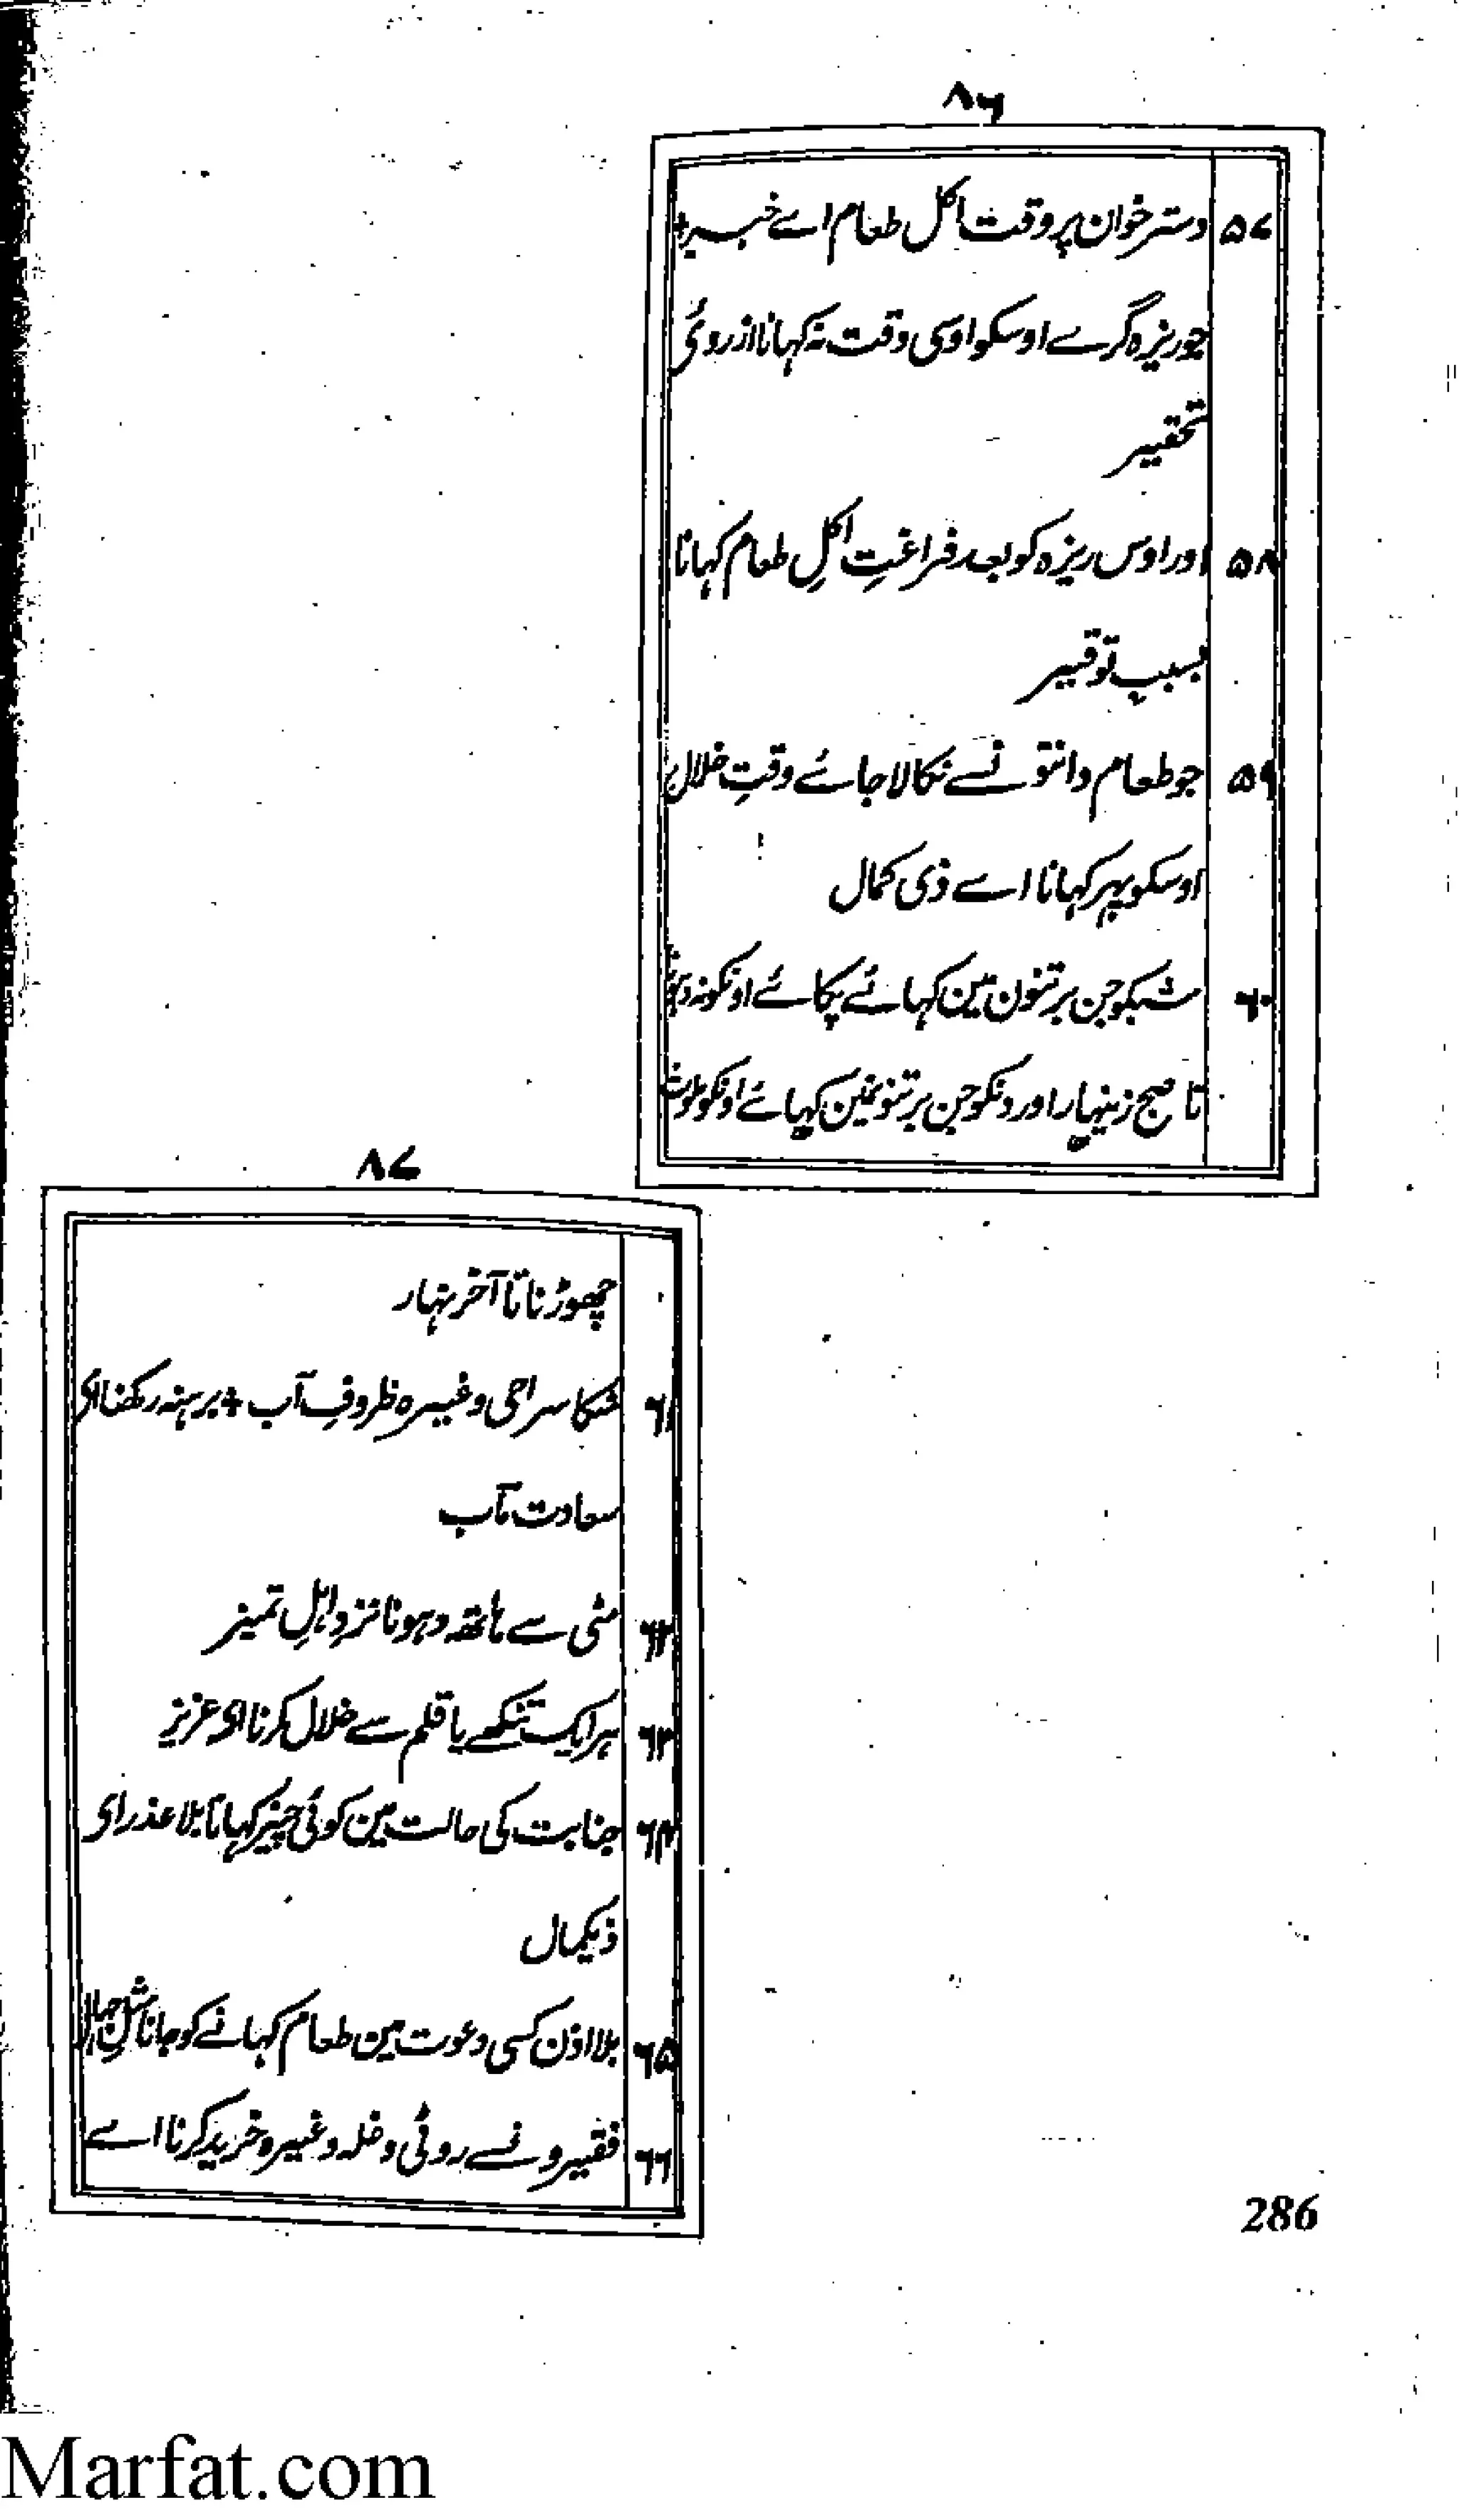 ۸۶
۵۷ دسترخوان پر وقت اکل طعام اے خبیر +
جو ریزہ گرے اوسکو اوسی وقت نہ کہانا از روئ
تحقیر
۵۸ اور اوس ریزہ کو بعد فراغتِ اکلِ طعام کہانا
بسبب توقیر
۵۹ جو طعام دانتونسے نکالا جائے وقتِ خلال
اوسکو پہر کہانا اے ذی کمال
۶۰ شبکو جن برتنون مین کہائے پکائے اونکو نہ دہونا
تا صبح زینہار اور دنکو جن برتنونمین کہائے اونکو ملوث
۸۷
چھوڑنا تا آخر نہار
۶۱ مٹکا سراحی وغیرہ ظروفِ آب + برہنہ رکہنا ای
سعادت مآب
۶۲ مٹی سے ہاتھ دہونا نزدِ اہلِ تمیز
۶۳ ہر ایک تنکے یا قلم سے خلال کرنا ای عزیز
۶۴ جنابت کی حالت مین کوئی چیز کہانا بلا عذر ای
ذیکمال
۶۵ بلا اذن کسی دعوت مین طعام کہانے کو جانا مثلِ جہال
۶۶ فقیرونسے روٹی وغلہ وغیرہ خرید کرنا اے
286
Marfat.com